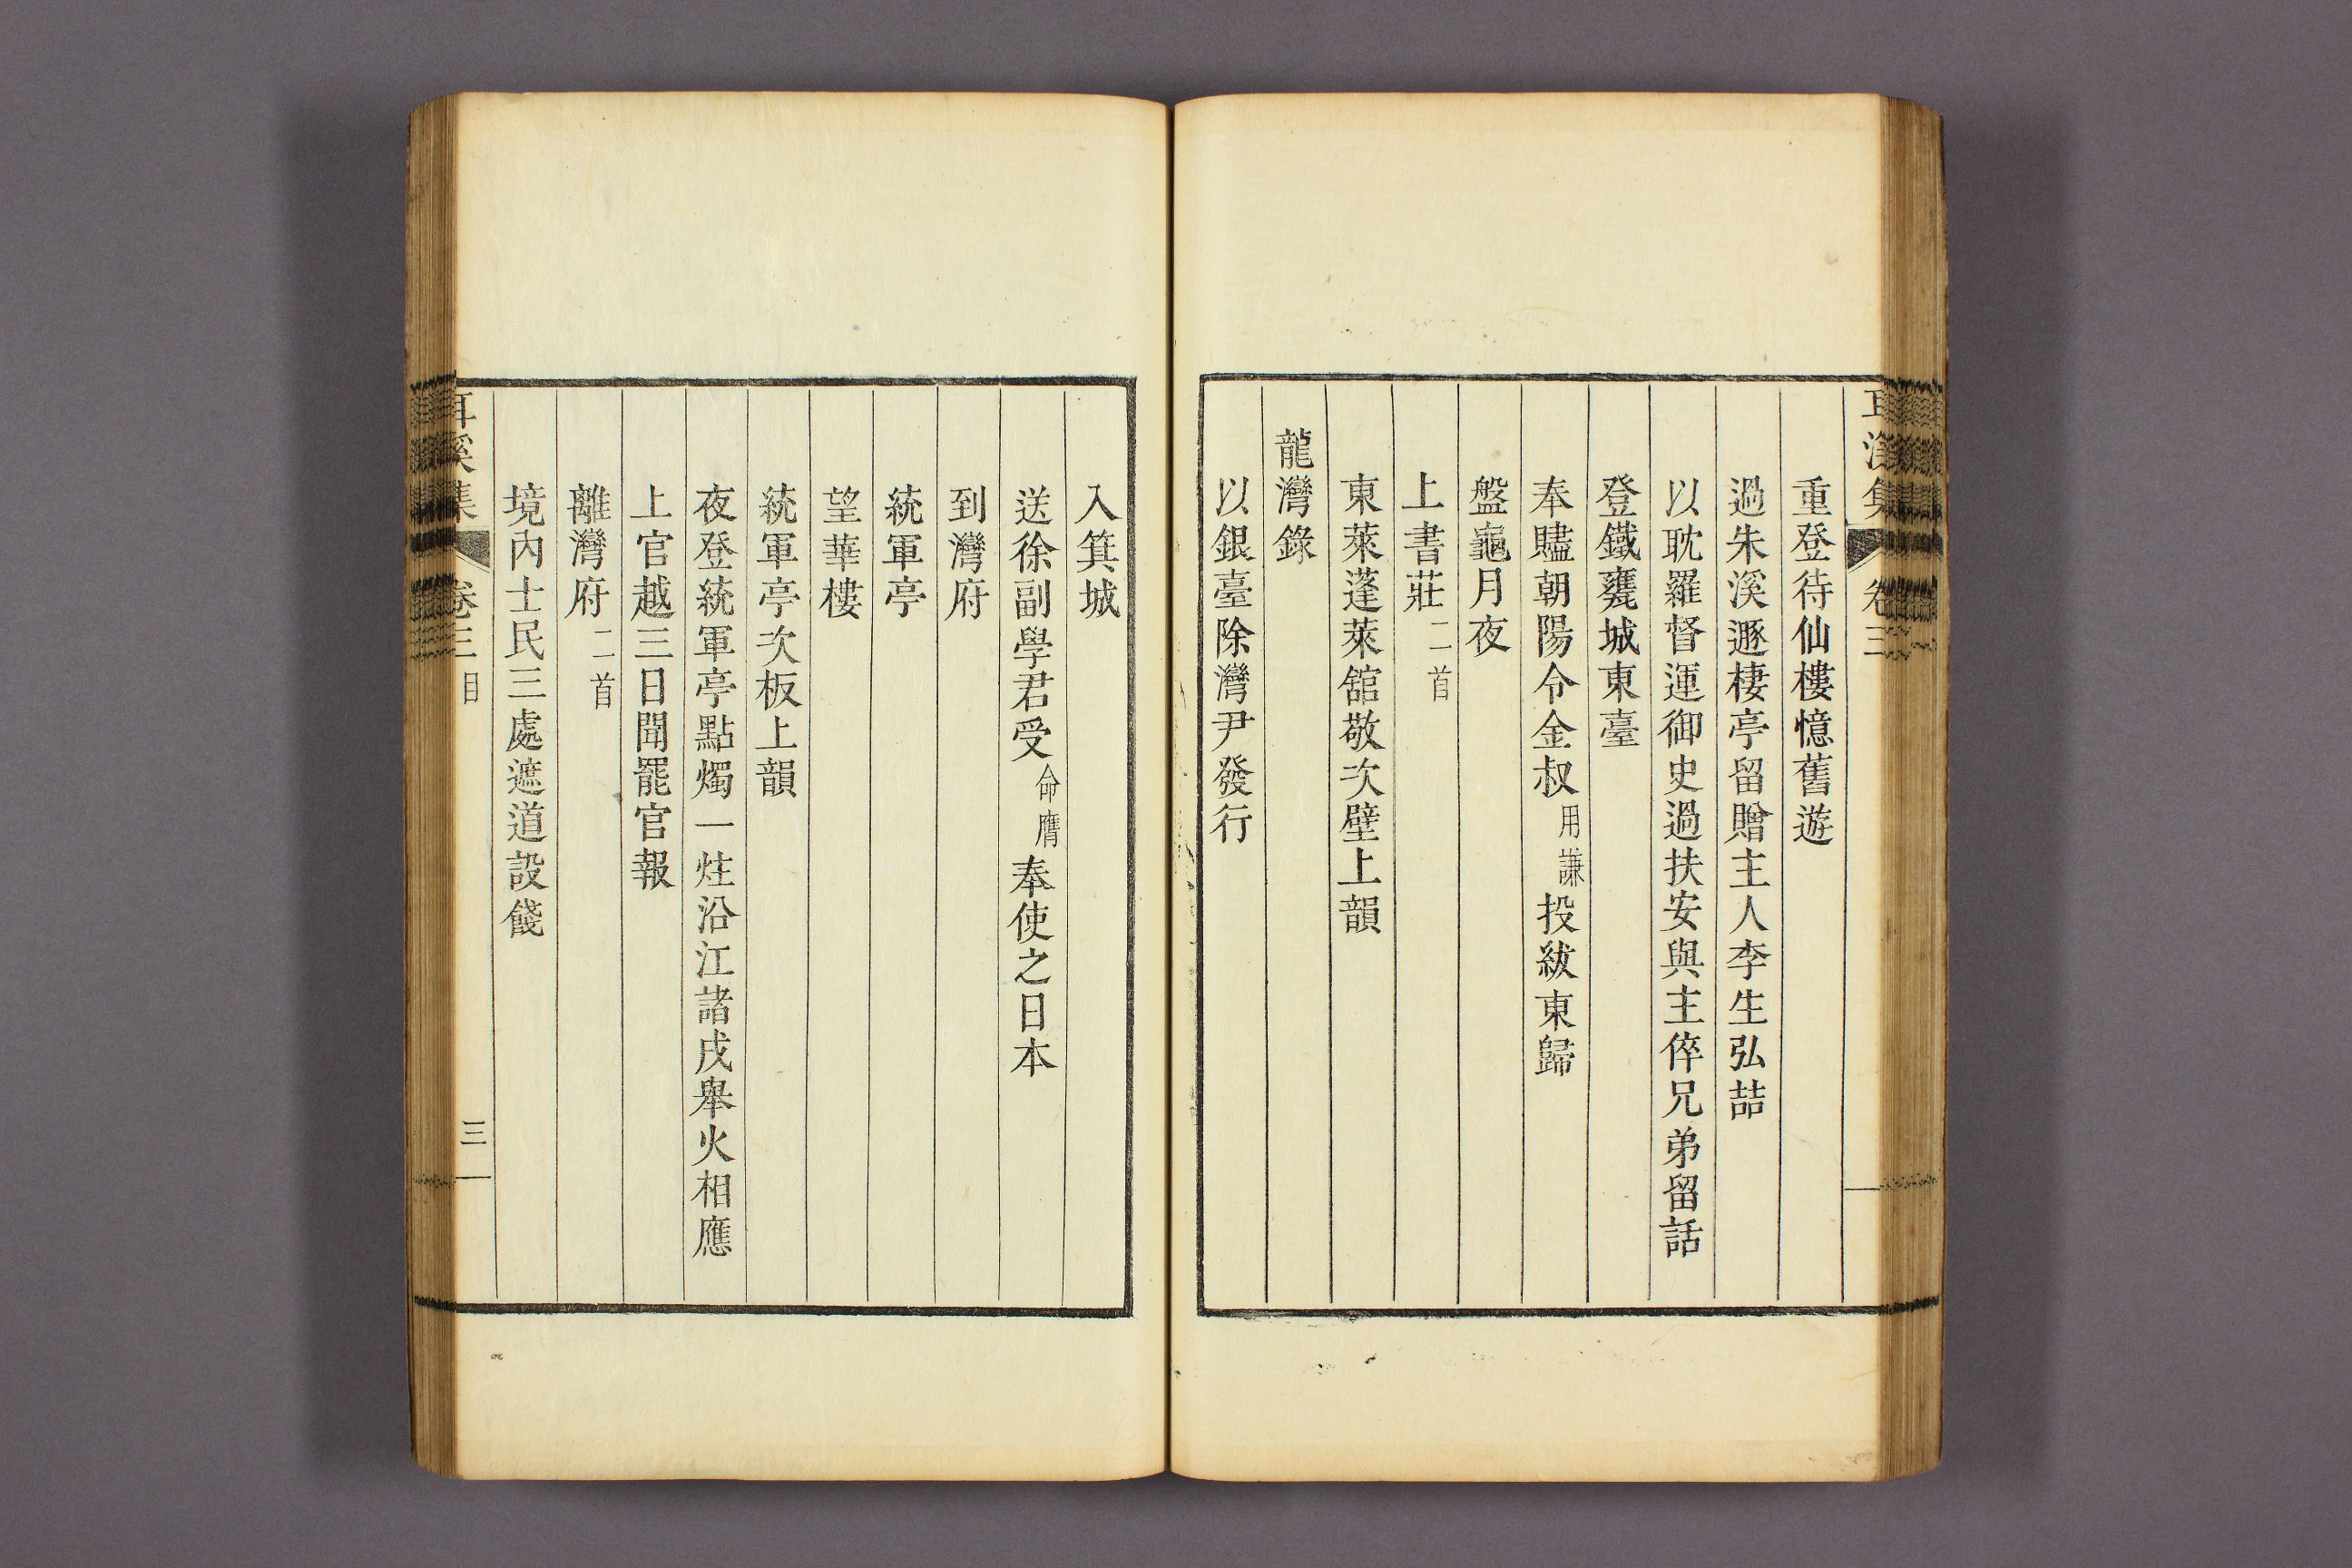 耳溪集 卷三
重登待仙樓憶舊遊
過朱溪遯棲亭留贈主人李生弘喆
以耽羅督運御史過扶安與主倅兄弟留話
登鐵甕城東臺
奉贐朝陽令金叔用謙投紱東歸
盤龜月夜
上書莊二首
東萊蓬萊舘敬次壁上韻
龍灣錄
以銀臺除灣尹發行
入箕城
送徐副學君受命膺奉使之日本
到灣府
統軍亭
望華樓
統軍亭次板上韻
夜登統軍亭點燭一炷沿江諸戍舉火相應
上官越三日聞罷官報
離灣府二首
境內士民三處遮道設餞
耳溪集 卷三 目 三